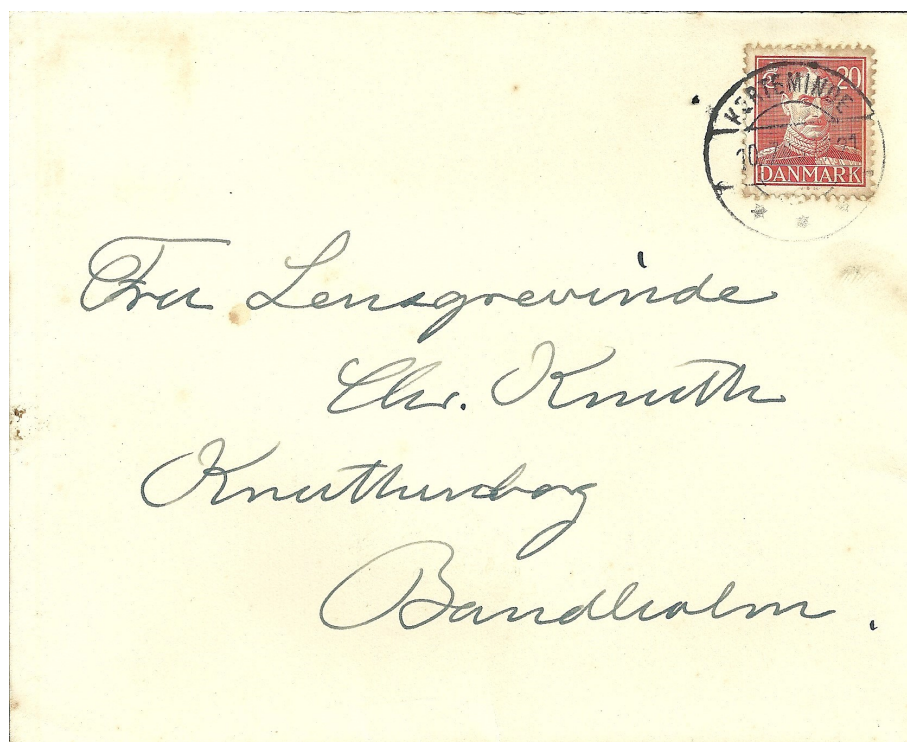 20
KERTEMINDE
DANMARK
Fru Lensgrevinde
Chr. Knuth
Knuthenborg
Bandholm.